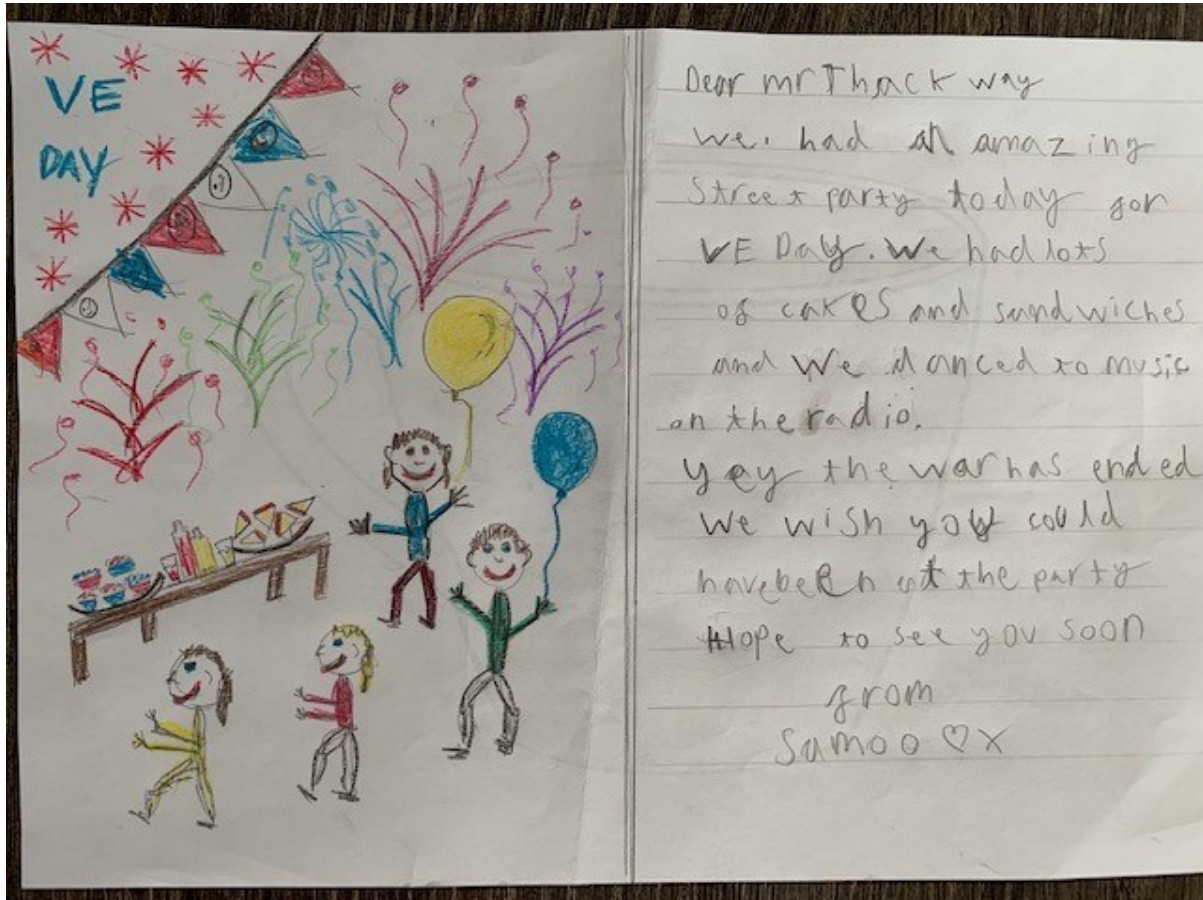 VE
DAY
Dear mr Thack way
we. had an amazing
Street party today for
VE Day. We had lots
of cakes and sandwiches
and we danced to music
on the radio.
yey the war has ended
we wish you could
have been at the party
Hope to see you soon
from
Samoo ♡ X